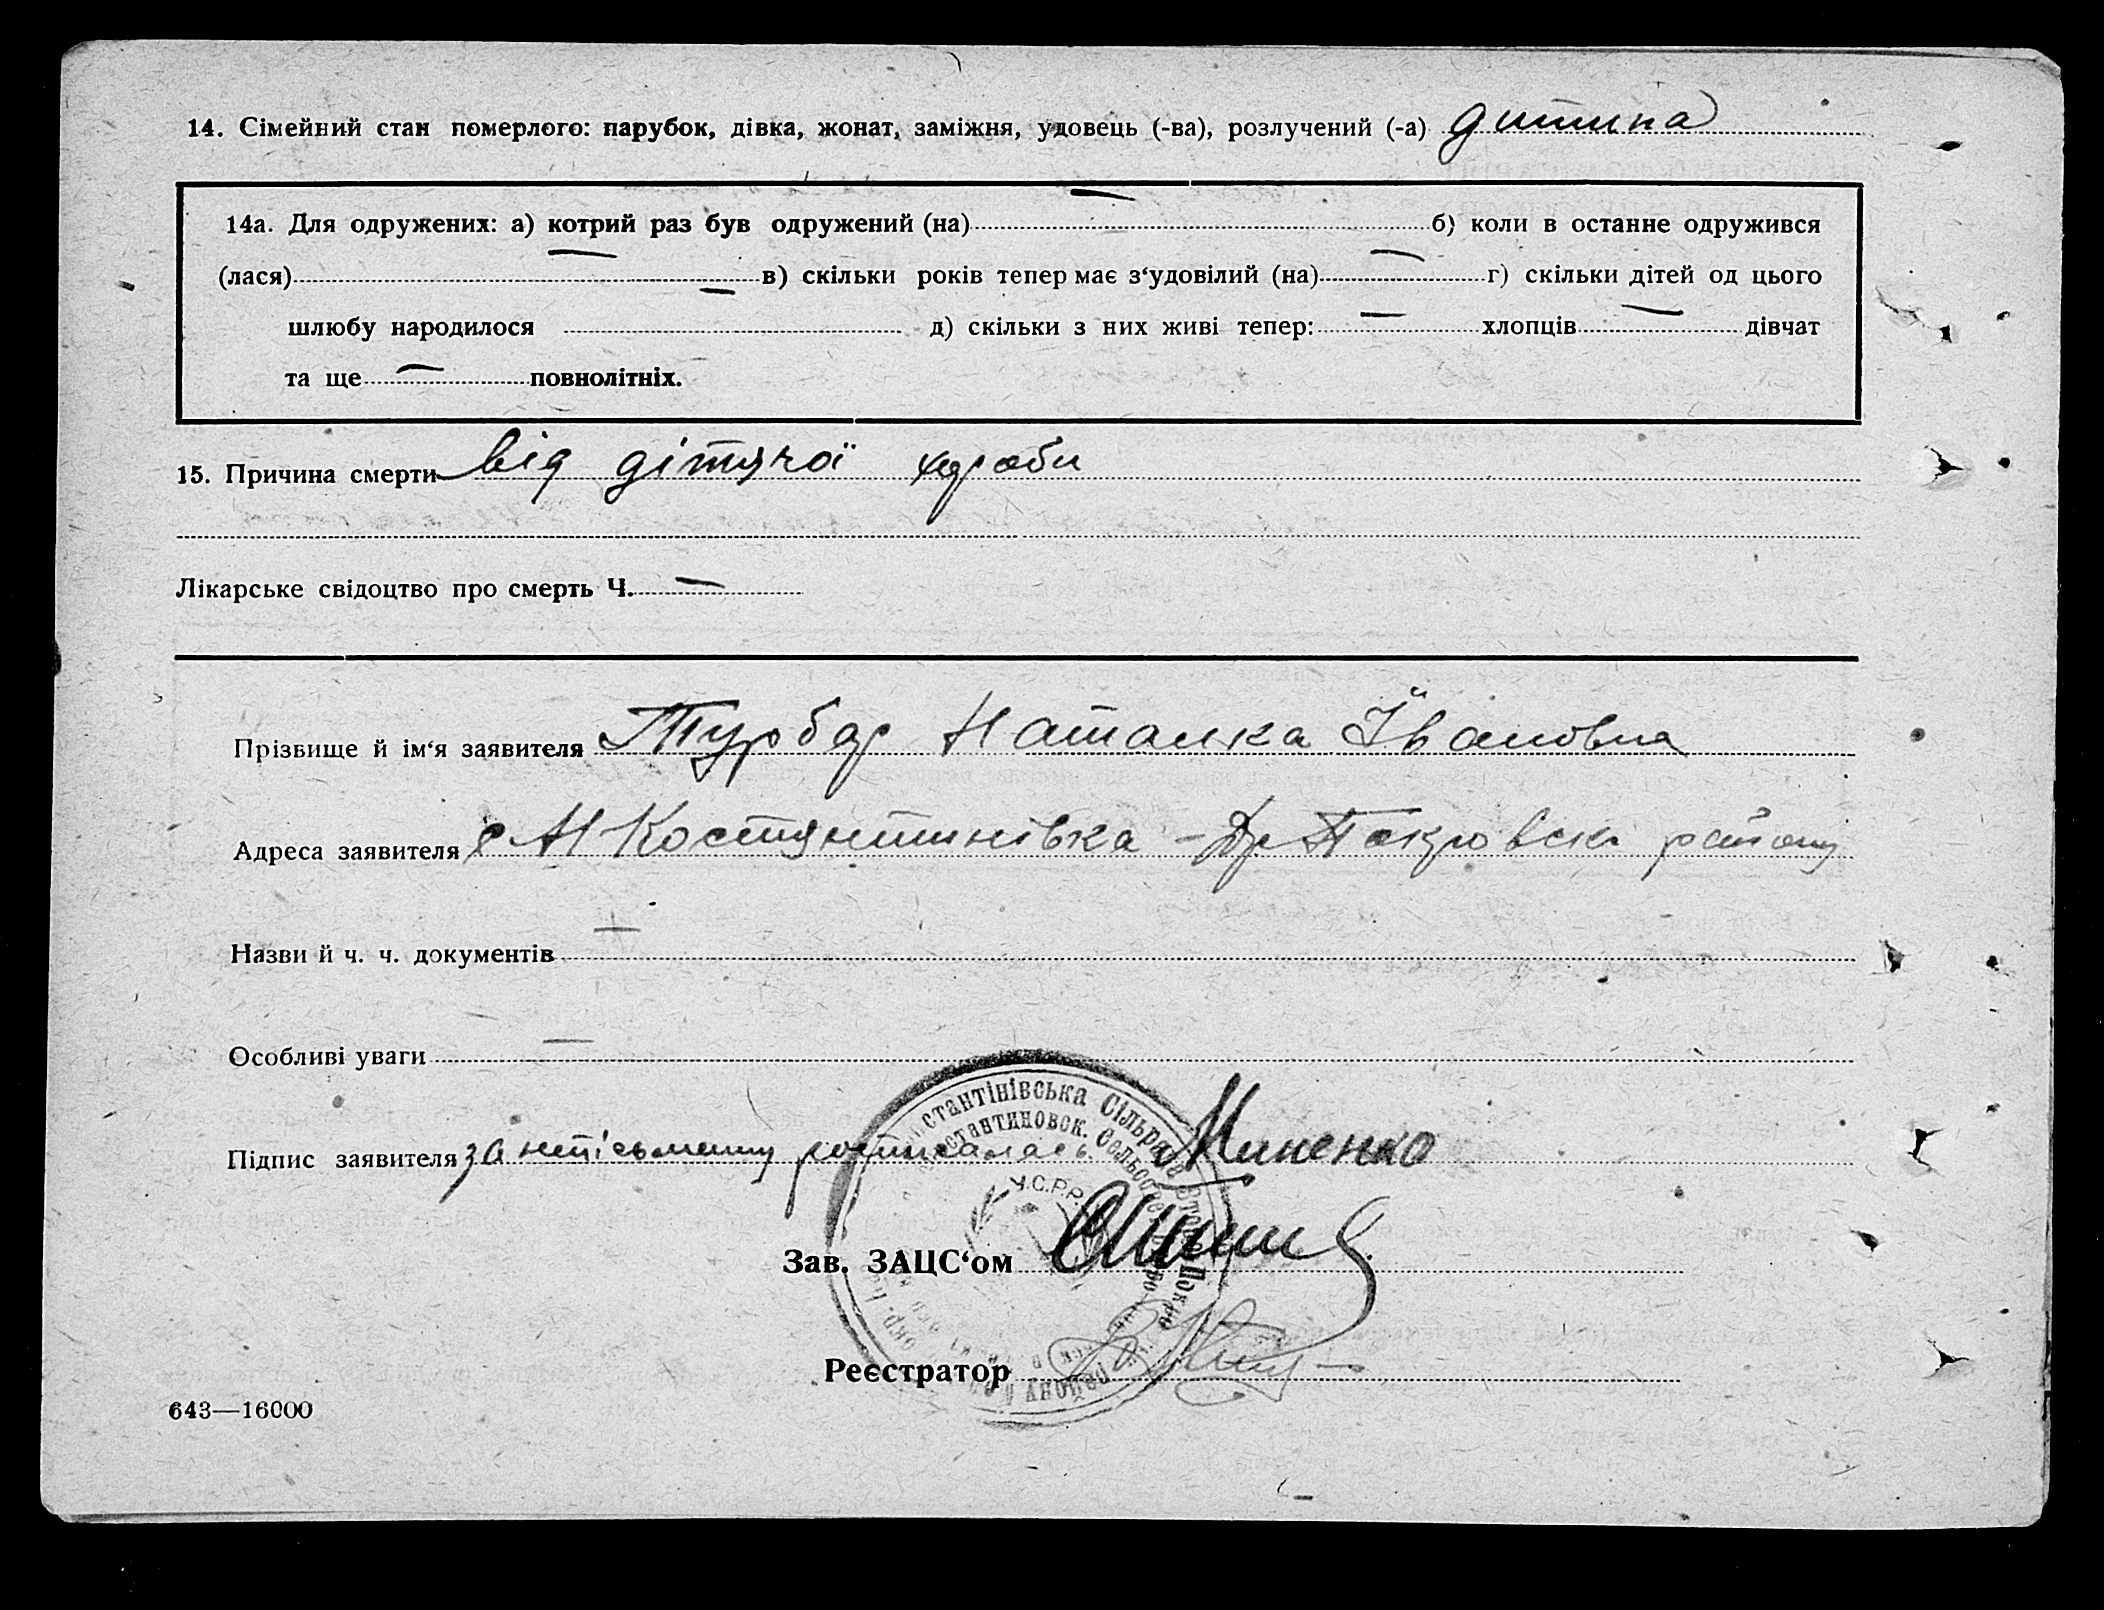 14. Сімейний стан померлого: парубок, дівка, жонат, заміжня, удовець (-ва), розлучений (-а) дитина
14а. Для одружених: а) котрий раз був одружений (на) — б) коли в останне одружився
(лася) — в) скільки років тепер має з‘удовілий (на) — г) скільки дітей од цього
шлюбу народилося — д) скільки з них живі тепер: — хлопців — дівчат
та ще — повнолітніх.
15. Причина смерти від дітячої хороби
Лікарське свідоцтво про смерть Ч. —
Прізвище й ім‘я заявителя Турбар Наталка Івановна
Адреса заявителя с Н Костянтинівка - Покровск району
Назви й ч. ч. документів —
Особливі уваги —
Підпис заявителя за розписалась Миненко
стантінівська Сільрада
стантиновск. Сельсовет
У.С.Р.Р.
району
Зав. ЗАЦС‘ом
Реєстратор
643—16000